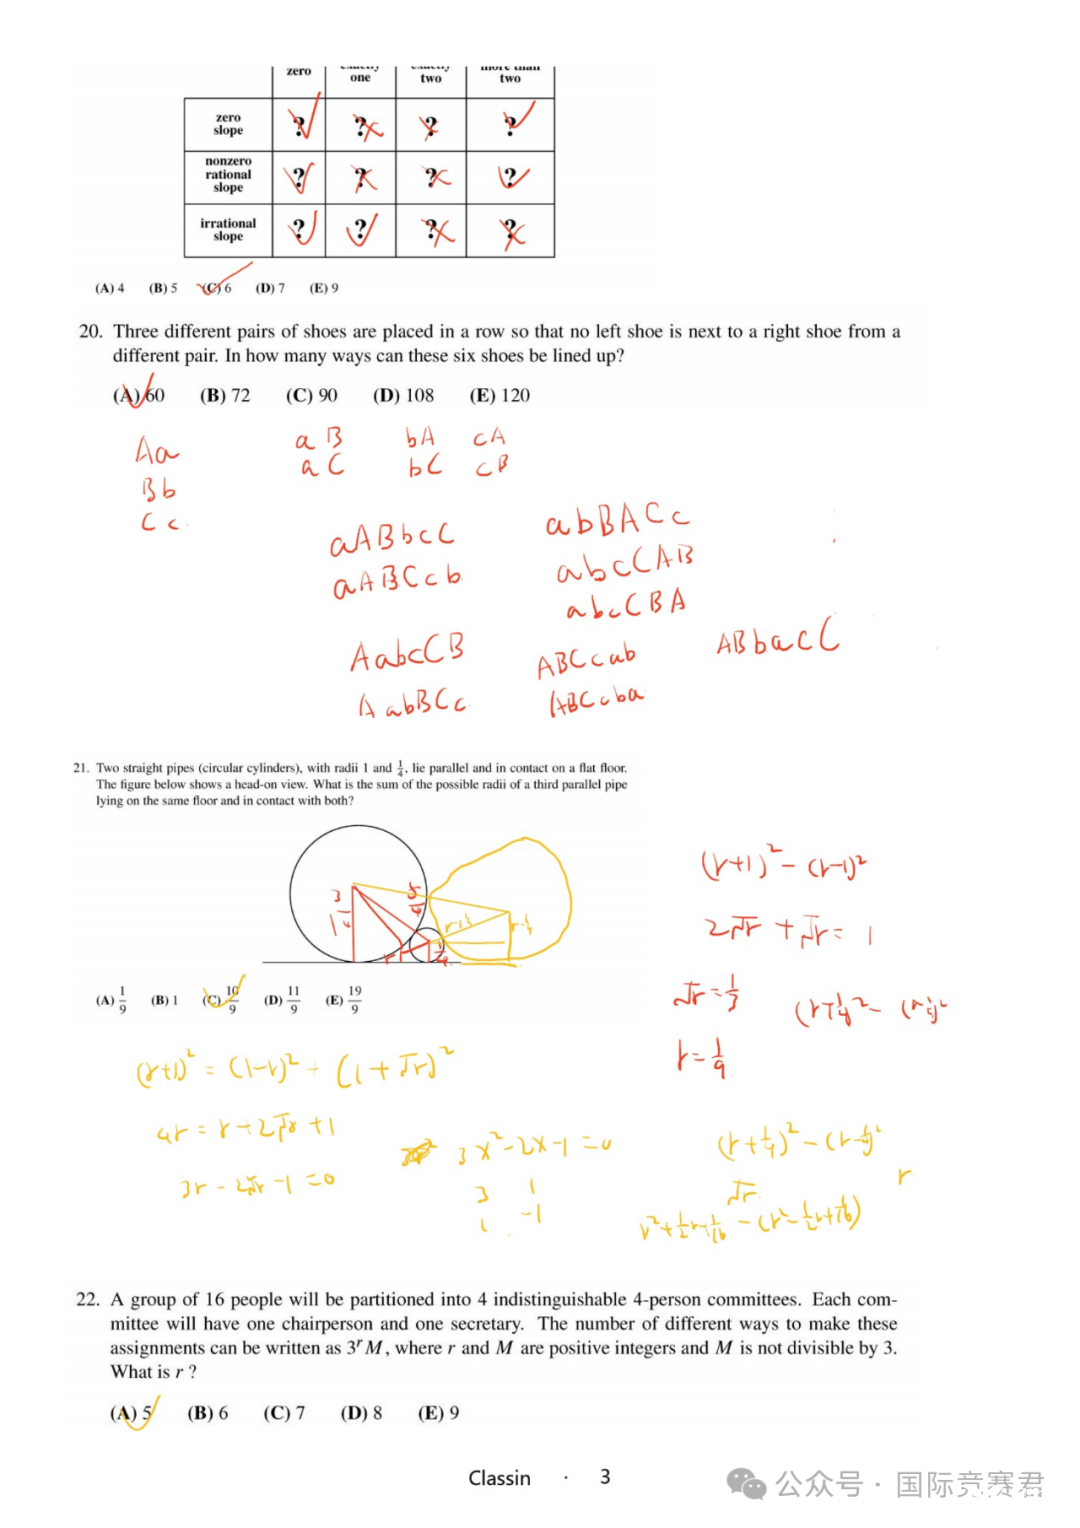 zero one two two
zero slope ? ? ? ?
nonzero rational slope ? ? ? ?
irrational slope ? ? ? ?
(A) 4 (B) 5 (C) 6 (D) 7 (E) 9
20. Three different pairs of shoes are placed in a row so that no left shoe is next to a right shoe from a
different pair. In how many ways can these six shoes be lined up?
(A) 60 (B) 72 (C) 90 (D) 108 (E) 120
Aa
Bb
Cc
aB bA cA
aC bC cB
aABbcC
aABCcb
abBACc
abcCAB
abcCBA
AabcCB
AabBCc
ABCcab
ABCcba
ABbacC
21. Two straight pipes (circular cylinders), with radii 1 and 1/4, lie parallel and in contact on a flat floor.
The figure below shows a head-on view. What is the sum of the possible radii of a third parallel pipe
lying on the same floor and in contact with both?
(A) 1/9 (B) 1 (C) 10/9 (D) 11/9 (E) 19/9
(r+1)² - (r-1)²
2√r + √r = 1
√r = 1/3
r = 1/9
(r+1)² = (1-r)² + (1+√r)²
4r = r+2√r+1
3r - 2√r - 1 = 0
3x² - 2x - 1 = 0
3 1
1 -1
(r+1/4)² - (r-1/4)²
√r
r
r²+1/2r+1/16 - (r²-1/2r+1/16)
22. A group of 16 people will be partitioned into 4 indistinguishable 4-person committees. Each com-
mittee will have one chairperson and one secretary. The number of different ways to make these
assignments can be written as 3^r M, where r and M are positive integers and M is not divisible by 3.
What is r ?
(A) 5 (B) 6 (C) 7 (D) 8 (E) 9
Classin · 3
公众号 · 国际竞赛君